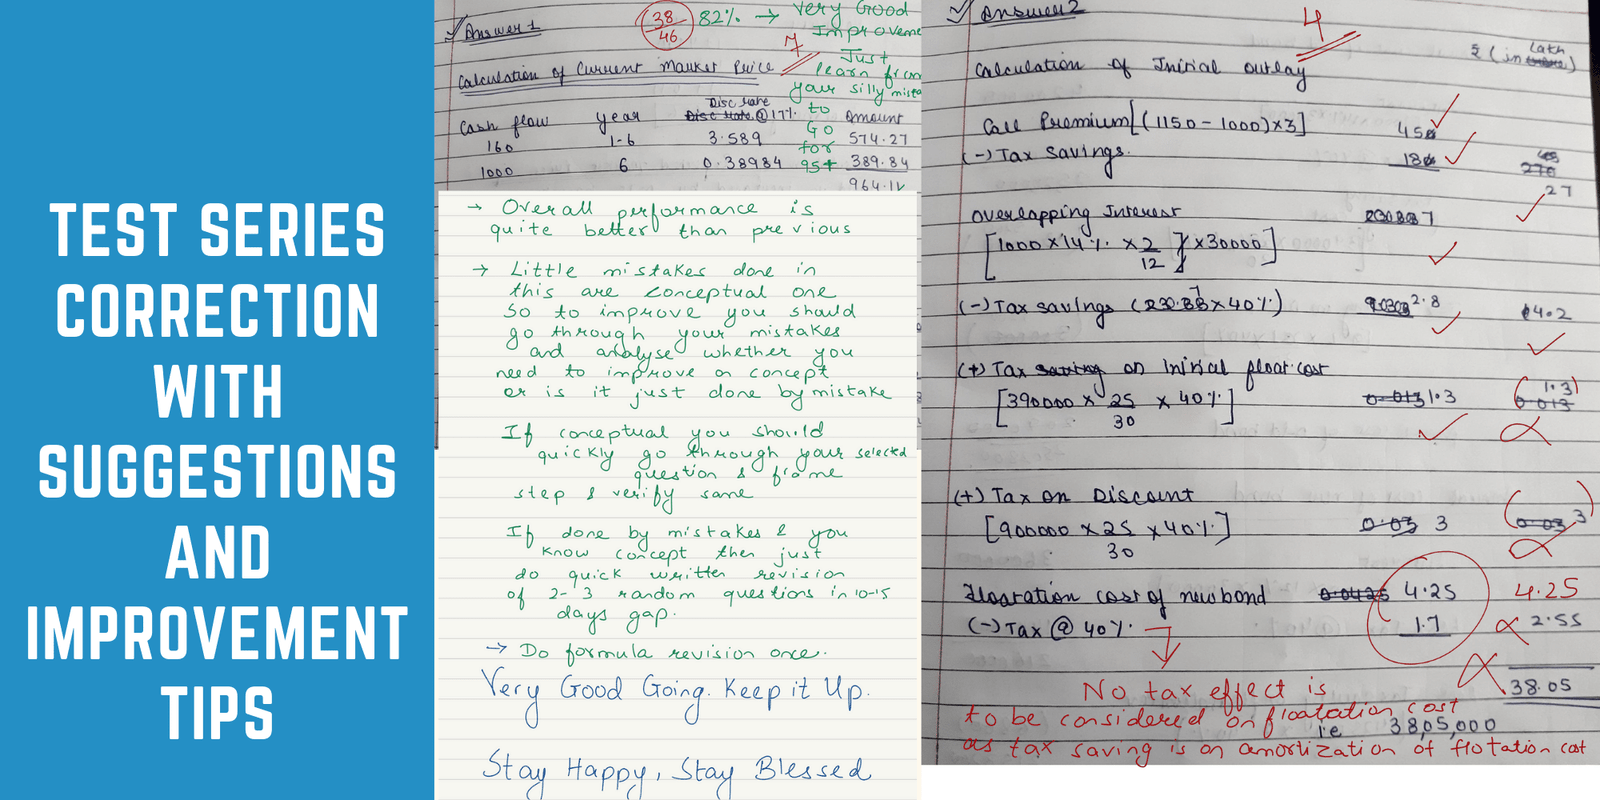 TEST SERIES
CORRECTION
WITH
SUGGESTIONS
AND
IMPROVEMENT
TIPS
Answer 1
38/46 82% → Very Good
Improveme
7 Just
learn from
your silly mista
to
Go
for
95+
Calculation of Current Market Price
Disc rate
Cash flow year @ 17% Amount
160 1-6 3.589 574.27
1000 6 0.38984 389.84
964.11
→ Overall performance is
quite better than previous
→ Little mistakes done in
this are conceptual one
So to improve you should
go through your mistakes
and analyse whether you
need to improve on concept
or is it just done by mistake
If conceptual you should
quickly go through your selected
question & frame
step & verify same
If done by mistakes & you
know concept then just
do quick written revision
of 2-3 random questions in 10-15
days gap.
→ Do formula revision once.
Very Good Going. Keep it Up.
Stay Happy, Stay Blessed
Answer 2
4
₹ (in Lakh)
Calculation of Initial outlay
Call Premium [(1150 - 1000) × 3] 45
(-) Tax Savings. 18
27
Overlapping Interest 7
[1000 × 14% × 2/12 × 30000]
(-) Tax savings ( × 40%) 2.8 4.2
(+) Tax on Initial float. cost (1.3)
[390000 × 25/30 × 40%] 1.3
(+) Tax on Discount
[900000 × 25/30 × 40%] 3 (3)
Floatation cost of new bond 4.25 4.25
(-) Tax @ 40%. 1.7 2.55
38.05
No tax effect is
to be considered on floatation cost
i.e 38,05,000
as tax saving is on amortization of flotation cost